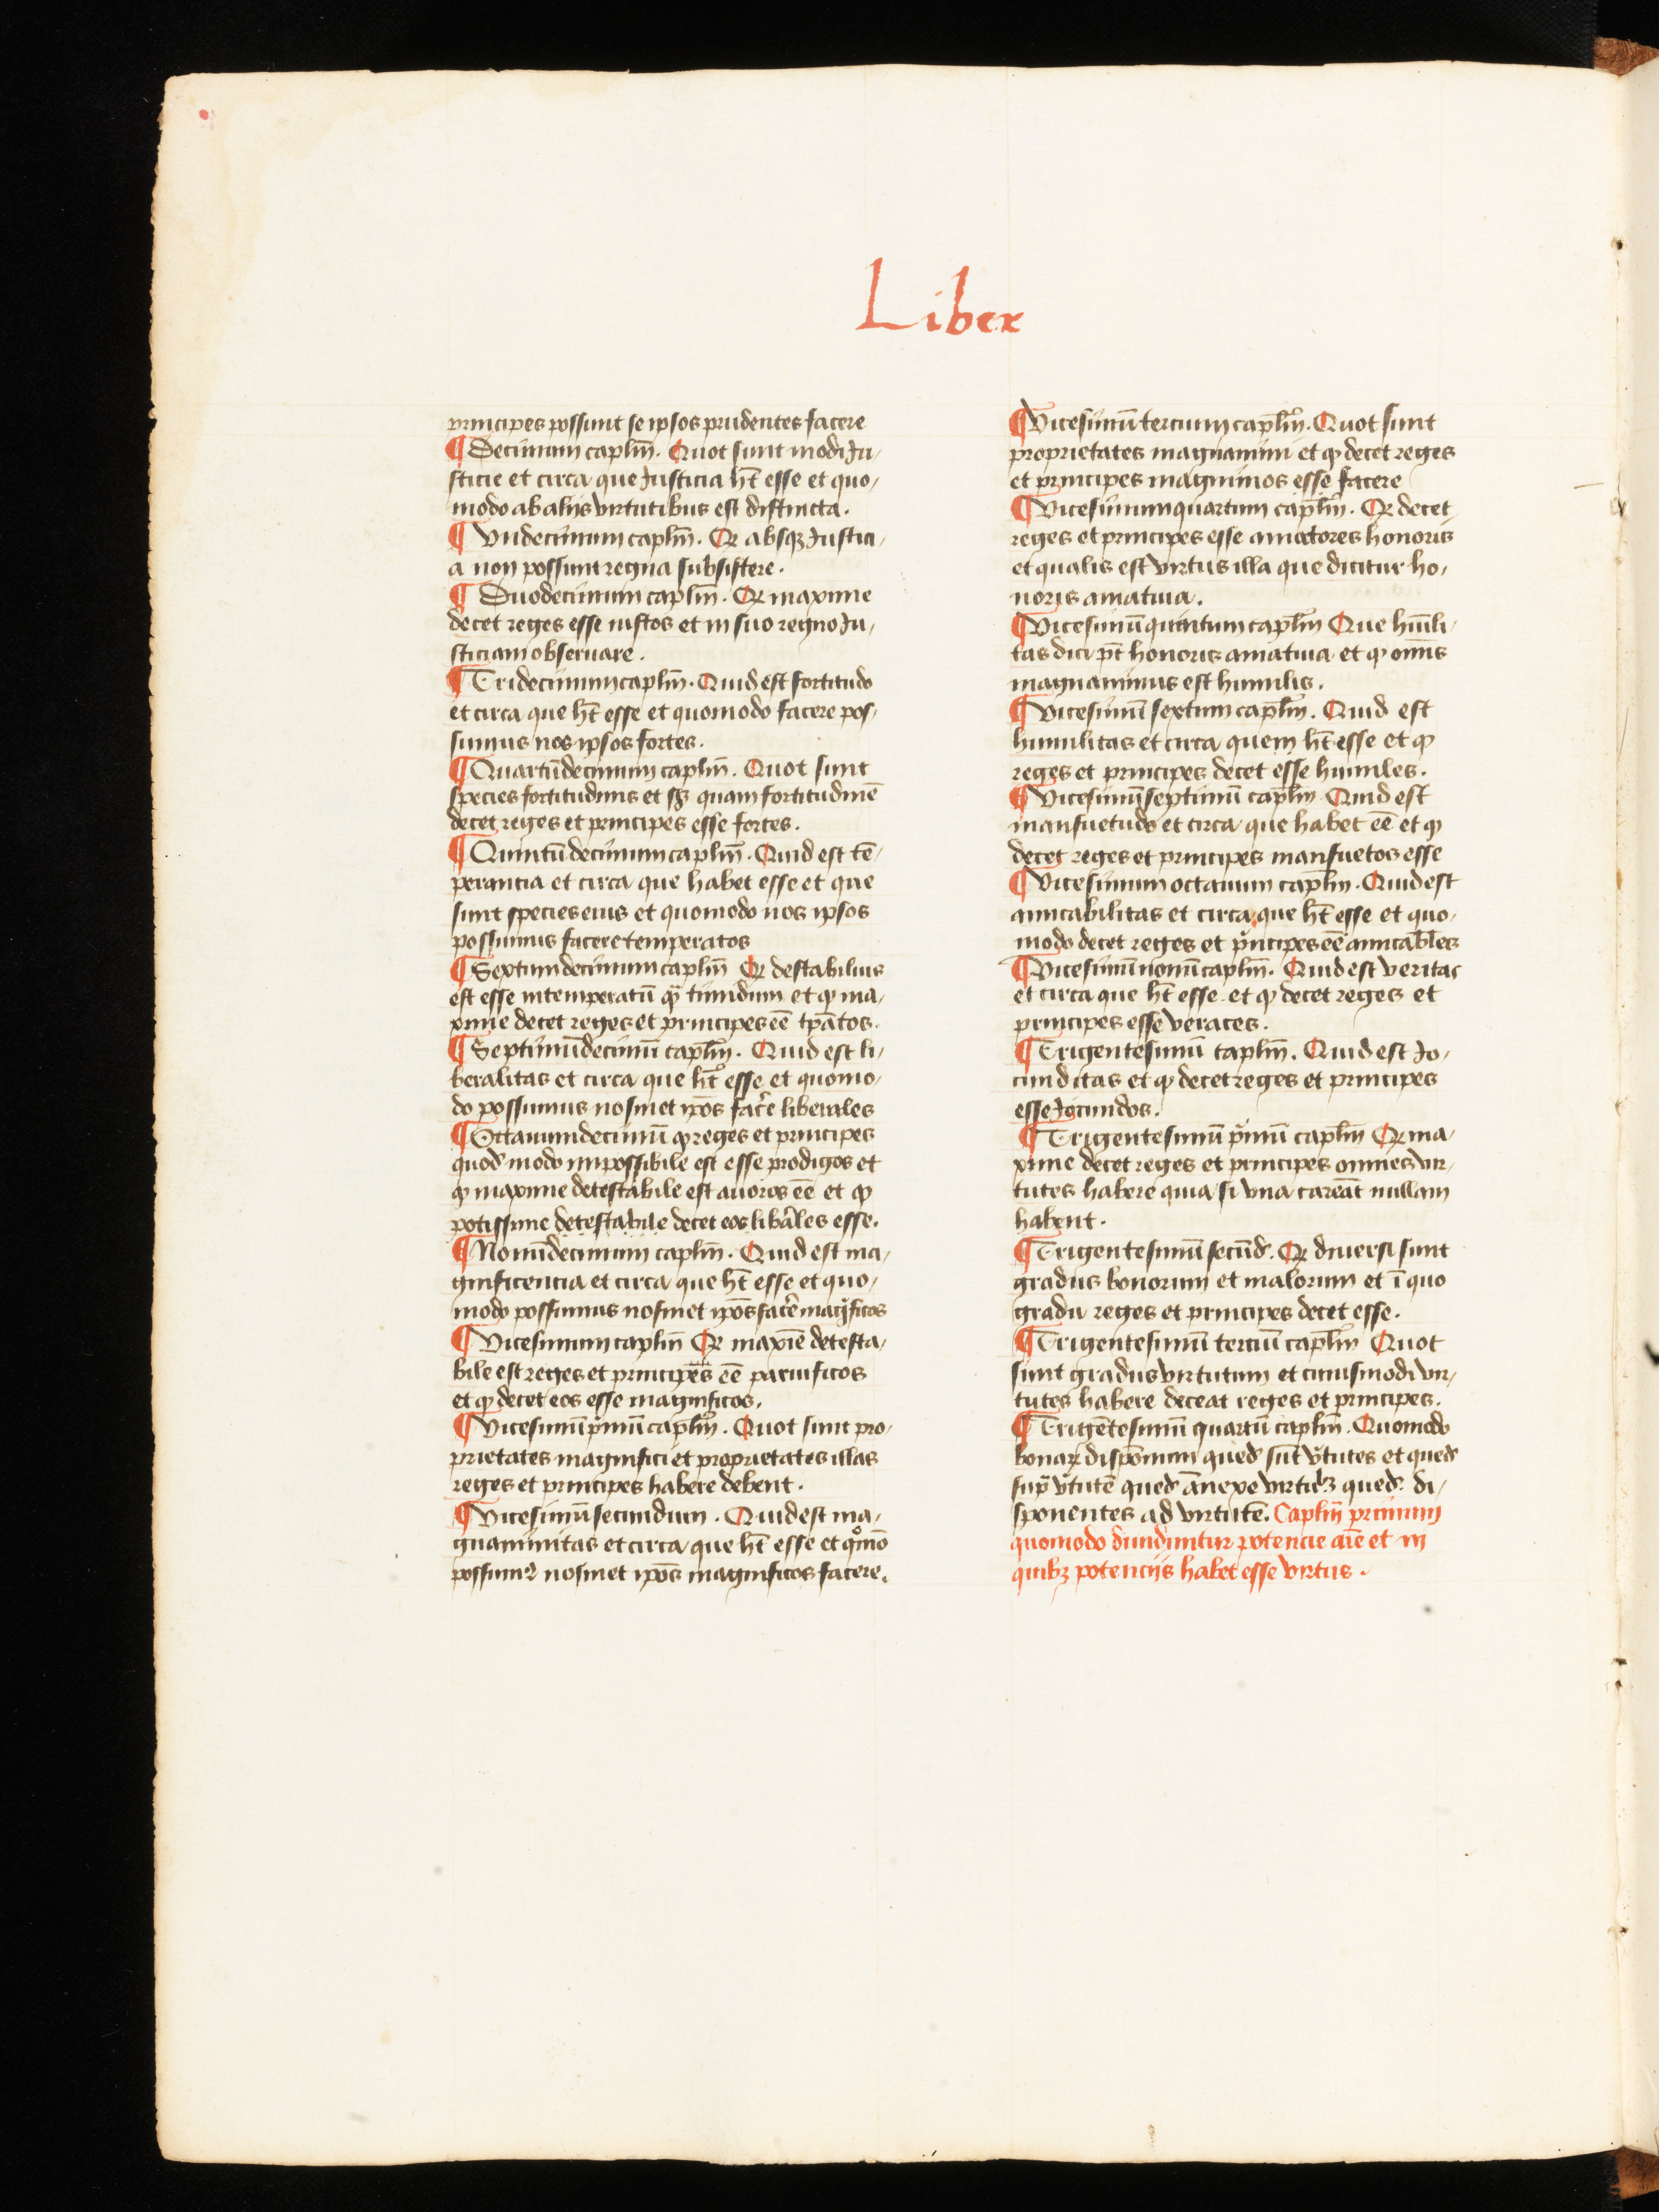 Liber
principes possunt se ipsos prudentes facere
¶ Decimum caplm̄. Quot sunt modi Ju-
sticie et circa que Justicia ht̄ esse et quo-
modo ab alijs virtutibus est distincta.
¶ Vndecimum caplm̄. Qꝛ absqꝫ Justici-
a non possunt regna subsistere.
¶ Duodecimum caplm̄. Qꝛ maxime
decet reges esse iustos et in suo regno Ju-
sticiam obseruare.
¶ Tridecimum caplm̄. Quid est fortitudo
et circa que ht̄ esse et quomodo facere pos-
sumus nos ipsos fortes.
¶ Quartūdecimum caplm̄. Quot sunt
species fortitudinis et sꝫ quam fortitudinē
decet reges et principes esse fortes.
¶ Quintūdecimum caplm̄. Quid est tē-
perancia et circa que habet esse et que
sunt species eius et quomodo nos ipsos
possumus facere temperatos
¶ Sextumdecimum caplm̄ Qꝛ destabilius
est esse intemperatū qᷓ timidum et ꝙ ma-
xime decet reges et principes eē tp̄atos.
¶ Septimūdecimū caplm̄. Quid est li-
beralitas et circa que ht̄ esse et quomo-
do possumus nosmet ip̄os fac̄e liberales
¶ Octauumdecimū ꝙ reges et principes
quod modo impossibile est esse prodigos et
ꝙ maxime detestabile est auoros eē et ꝙ
potissime detestabile decet eos libāles esse.
¶ Nonūdecimum caplm̄. Quid est ma-
gnificencia et circa que ht̄ esse et quo-
modo possumus nosmet ip̄os fac̄e magᷓficos
¶ Vicesimum caplm̄ Qꝛ maxīe detesta-
bile est reges et principes eē paruificos
et ꝙ decet eos esse magnificos.
¶ Vicesimū pͥmū caplm̄. Quot sunt pro-
prietates magnifici et proprietates illas
reges et principes habere debent.
¶ Vicesimū secundum. Quid est ma-
gnanimitas et circa que ht̄ esse et qͦmō
possumꝰ nosmet ip̄os magnificos facere.
¶ Vicesimū tercium caplm̄. Quot sunt
proprietates magnanimi et ꝙ decet reges
et principes magnimos esse facere
¶ Vicesimum quartum caplm̄. Qꝛ decet
reges et principes esse amatores honoris
et qualis est virtus illa que dicitur ho-
noris amatiua.
¶ Vicesimū quintum caplm̄ Que hūili-
tas dici pt̄ honoris amatiua et ꝙ om̄is
magnanimus est humilis.
¶ Vicesimū sextum caplm̄. Quid est
humilitas et circa quem ht̄ esse et ꝙ
reges et principes decet esse humiles.
¶ Vicesimū septimū caplm̄ Quid est
mansuetudo et circa que habet eē et ꝙ
decet reges et principes mansuetos esse
¶ Vicesimum octauum caplm̄. Quid est
amicabilitas et circa que ht̄ esse et quo-
modo decet reges et pͥncipes eē amicabl̄es
¶ Vicesimū nonū caplm̄. Quid est veritas
et circa que ht̄ esse et ꝙ decet reges et
principes esse veraces.
¶ Trigentesimū caplm̄. Quid est Jo-
cunditas et ꝙ decet reges et principes
esse Jocundos.
¶ Trigentesimū pͥmū caplm̄ Qꝛ ma-
xime decet reges et principes omnes vir-
tutes habere quia si vna careāt nullam
habent.
¶ Trigentesimū secūd. Qꝛ diuersi sunt
gradus bonorum et malorum et ī quo
gradu reges et principes decet esse.
¶ Trigentesimū terciū caplm̄ Quot
sunt gradus virtutum et cuiusmodi vir-
tutes habere deceat reges et principes.
¶ Trigētesimū quartū caplm̄. Quomodo
bonaꝝ disp̄onum qued sūt v̓tutes et qued
supᷓ v̓tutē qued ānexe virtutibꝫ qued di-
sponentes ad virtutē. Caplm̄ primum
quomodo diuiduntur potencie aīe et in
quibꝫ potencijs habet esse virtus.